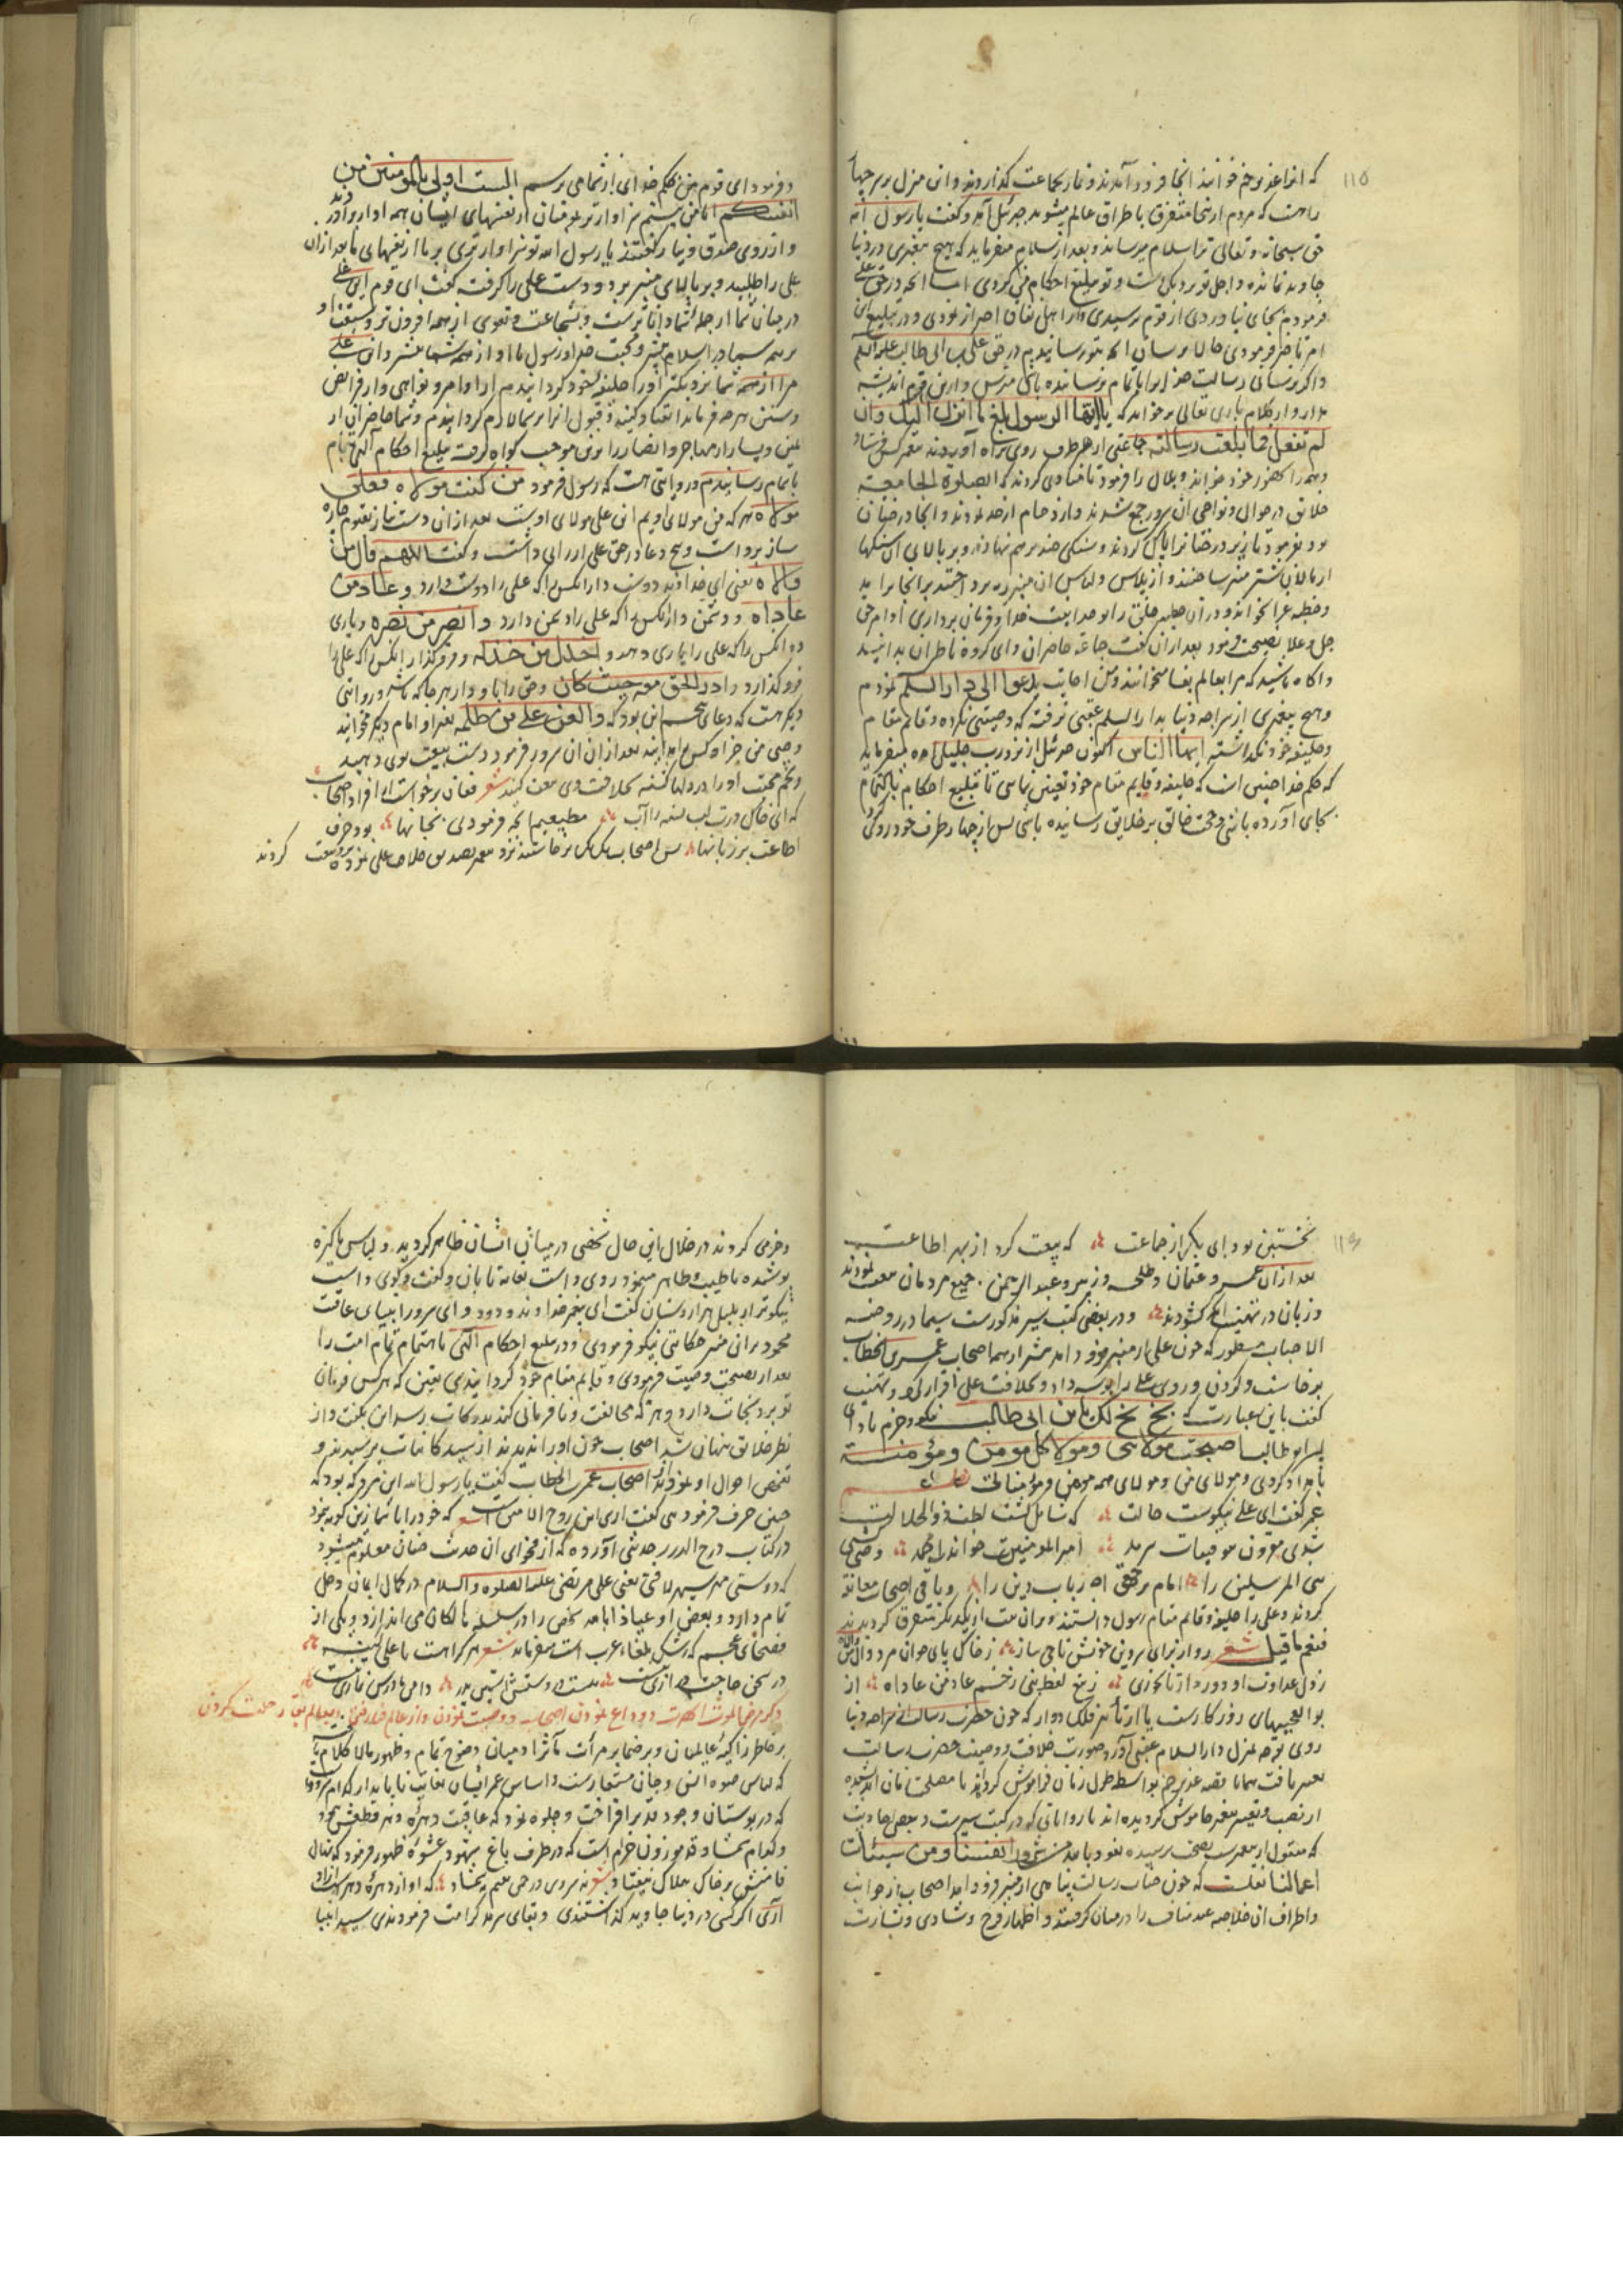 ۱۱۵
که انرا غدیر خم خوانند انجا فرود آمدند و نماز بجماعت گذاردند و ان منزل بر سر چهار
راهست که مردم از انجا متفرق باطراف عالم میشوند جبرئیل آمد و گفت یا رسول الله
حق سبحانه و تعالی ترا سلام میرساند و بعد از سلام میفرماید که هیچ پیغمبری در دنیا
جاوید نمانده و اجل تو نزدیک است و تو تبلیغ احکام من کردی اما انچه در حق علی
فرمودم بجای نیاوردی از قوم ترسیدی و از اهل نفاق احتراز نمودی و در تبلیغ این
امر تاخیر فرمودی حالا برسان انچه بتو رسانیدیم در حق علی بن ابی طالب علیه السلم
و اگر نرسانی رسالت مرا بتمام نرسانیده باشی مترس و ازین قوم اندیشه
مدار و از کلام باری تعالی برخواند که یا ایها الرسول بلغ ما انزل الیک وان
لم تفعل فما بلغت رسالته جماعتی از هر طرف روی براه آوردند پیغمبر کس فرستاد
و همه را بحضور خود خواند و بلال را فرمود تا منادی کردند که الصلوة الجامعة
خلایق در حوالی و نواحی ان سرور جمع شدند و از ازدحام از حد بودند و انجا درختان
بود بفرمود تا زیر درختانرا پاک کردند و سنگی چند بر هم نهادند و بر بالای ان سنگها
از پالان شتر منبر ساختند و از پلاس و لباس ان منبر
و خطبه غرا بخواند و در ان خطبه خلق را بوحدانیت خدا و فرمان برداری اوامر حق
جل و علا نصیحت فرمود بعد از ان گفت جماعه حاضران و ای گروه ناظران بدانید
و اگاه باشید که مرا بعالم بقا میخوانند و من اجابت یدعوا الی دار السلم نمودم
و هیچ پیغمبری از سراچه دنیا بدار السلم عقبی نرفت که وصیتی نکرده و قائم مقام
و خلیفه خود نگذاشته ایها الناس اکنون جبرئیل از نزد رب جلیل امده میفرماید
که حکم خدا چنین است که خلیفه و قایم مقام خود تعیین نمایی تا تبلیغ احکام بالتمام
بجای آورده باشی و حجت خالق بر خلایق رسانیده باشی پس از چهار طرف خود روی کرد
و فرمود ای قوم من بحکم خدای از شما می پرسم الست اولی بالمومنین من
انفسکم ایا من نیستم سزاوارتر بمومنان از نفسهای ایشان همه اواز براوردند
و از روی صدق و نیاز گفتند یا رسول الله تو سزاوارتری بر ما از نفسهای ما بعد از ان
علی را طلبید و بر بالای منبر برد و دست علی را گرفت گفت ای قوم این علی
در میان شما از جمله شما داناترست و بشجاعت و تقوی از همه افزون تر و سبقت او
بر همه شما در اسلام بیشتر و محبت خدا و رسول با او از همه شما بیشتر و این علی
مرا از همه شما نزدیکتر او را خلیفه خود گردانیدم از اوامر و نواهی و از فرایض
و سنن هر چه فرماید انقیاد کنید و قبول انرا بر شما لازم گردانیدم و شما حاضران از
یمین و یسار از مهاجر و انصار را برین موجب گواه گرفت تبلیغ احکام الهی تمام
باتمام رسانیدم و روایتی هست که رسول فرمود من کنت مولاه فعلی
مولاه هر که من مولای اویم این علی مولای اوست بعد از ان دست نیاز بقیوم چاره
ساز برداشت و پنج دعا در حق علی ارزانی داشت و گفت اللهم وال من
والاه یعنی ای خداوند دوست دار انکس را که علی را دوست دارد و عاد من
عاداه و دشمن دار انکس را که علی را دشمن دارد و انصر من نصره و یاری
ده انکس را که علی را یاری دهد و اخذل من خذله و فروگذار انکس را که علی را
فروگذارد و ادر الحق معه حیث کان و حق را با او دار هر جا که باشد و روایتی
دیگر هست که دعای پنجم این بود که و العن علی من ظلمه بعد او امام دیگر مخوانید
و وصی من جز او کس را مدانید بعد از ان ان سرور فرمود دست بیعت بوی دهید
و تخم محبت او را در دلها کشته بخلافت وی بیعت کنید شعر فغان برخواست از افراد اصحاب
که ای خاک درت لب تشنه را آب مطیعیم انچه فرمودی بجانها بود حرف
اطاعت بر زبانها پس اصحاب یک یک برخاستند نزد پیغمبر تصدیق خلافت علی نموده بیعت کردند
۱۱۶
نخستین بود ابی بکر از جماعت که بیعت کرد از بهر اطاعت
بعد از ان عمر و عثمان و طلحه و زبیر و عبدالرحمن جمیع مردمان بیعت نمودند
و زبان در تهنیت گشودند و در بعضی کتب سیر مذکورست سیما در روضة
الاحباب مسطور که چون علی از منبر فرود امد پیشتر از همه اصحاب عمر بن الخطاب
برخاست و گردن و روی علی را بوسه داد و بخلافت علی اقرار کرد و تهنیت
گفت باین عبارت که بخ بخ لک یا بن ابی طالب نیکو و خرم باد ای
پسر ابو طالب اصبحت مولائی و مولا کل مومن و مؤمنة
بامداد کردی و مولای من و مولای همه مومنین و مؤمناتی
عمر گفت ای علی نیکوست حالت که شامل گشت لطف ذوالجلالت
شدی مقرون امیرالمومنینت خواند احمد وصی
سی المرسلین را امام برحقی ارباب دین را و باقی اصحاب معانقه
کردند و علی را خلیفه و قائم مقام رسول دانستند و بران نیت از یکدیگر متفرق گردیدند
فنعم ما قیل شعر رو از برای سر وین خویش تاجی ساز ز خاک پای جوان مرد وال من والاه
ز ول عداوت او دور دار تا نخوری ز تیغ لفظ نبی زخم عاد من عاداه از
بوالعجبیهای روزگارست یا از تاثیر فلک دوار که چون حضرت رسالت از سراچه دنیا
روی توجه بمنزل دارالسلام عقبی آورد صورت خلافت و وصیت حضرت رسالت
تغییر یافت همانا قصه غدیر خم بواسطه طول زمان فراموش کردند یا مصلحت شان اندیشیده
از نصب و تعیین پیغمبر خاموش گردیده اند با روایاتی که در کتب سیرست و بعضی احادیث
که منقول از پیغمبرست بصحت نرسیده نعوذ بالله من شرور انفسنا ومن سیئات
اعمالنا نقلست که چون جناب رسالت پناهی از منبر فرود امد اصحاب از جوانب
و اطراف ان خلاصه عبد مناف را در میان گرفتند و اظهار فرح و شادی و بشارت
و خرمی کردند در خلال این حال شخصی در میانی ایشان ظاهر گردید و لباس پاکیزه
پوشیده با طیب و طاهر روی داشت بغایت تابان و گفت و گوی داشت
نیکوتر از بلبل هزار دستان گفت ای پیغمبر خداوند ودود و ای سرور انبیای عاقبت
محمود بر این منبر حکایتی نیکو فرمودی و در تبلیغ احکام الهی باهتمام تمام امت را
بعد از نصیحت وصیت فرمودی و قایم مقام خود گردانیدی یقین که هر کس فرمان
تو برد نجات دارد و هر که مخالفت و نافرمانی کند بدرکات رسد این بگفت و از
نظر خلایق پنهان شد اصحاب چون او را ندیدند از سید کاینات پرسیدند و
تفحص احوال او نمودند از اصحاب عمر بن الخطاب گفت یا رسول الله این مرد که بود که
چنین حرف فرمود نبی گفت اری این روح الامین است شعر که خود را با نماز
در کتاب درج الدرر حدیثی آورده که از فحوای ان حدیث چنان معلوم میشود
که دوستی یعنی علی مرتضی علیه الصلوة و السلام در کمال ایمان دخل
تمام دارد و بعضی او عیاذا بالله شخص را در سلسله مالکان می اندازد و یکی از
فصحای عجم که رشک بلغاء عرب است میفرماید شعر هر کرا هست با علی کینه
در سخن حاجت درازی نیست نیست در دستش استین پدر دامن مادرش نمازی نیست
ذکر مرض الموت انحضرت و وداع نمودن اصحاب و وصیت نمودن و از عالم فنا بعالم بقا رحلت کردن
بر خاطر زاکیه عالمان و بر ضمایر مرات مآثر ادمیان وضوح تمام و ظهور مالا کلام
که لباس حیوة انس و جان مستعارست و اساس عمر ایشان بغایت ناپایدار کدام سرو
که در بوستان وجود قد برافراخت و جلوه نمود که عاقبت دهره دهر قطعش نکرد
و کدام شمشاد قد موزون خرامست که در طرف باغ شهود عشوه ظهور فرمود که نهال
قامتش بر خاک هلاک نیفتاد شعر نه سروی درچمن که او از دهره دهرست ازاد
آری اگر کسی در دنیا جاوید گذاشتندی و بقای سرمد کرامت فرمودندی سید انبیا